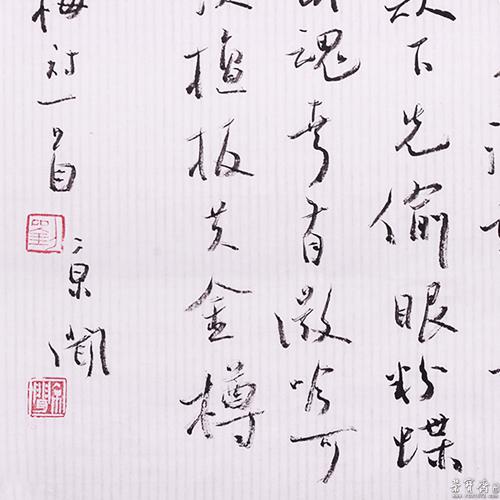 欲下先偷眼粉蝶
魂幸有微吟可
檀板共金樽
梅詩一首
京闻
劉